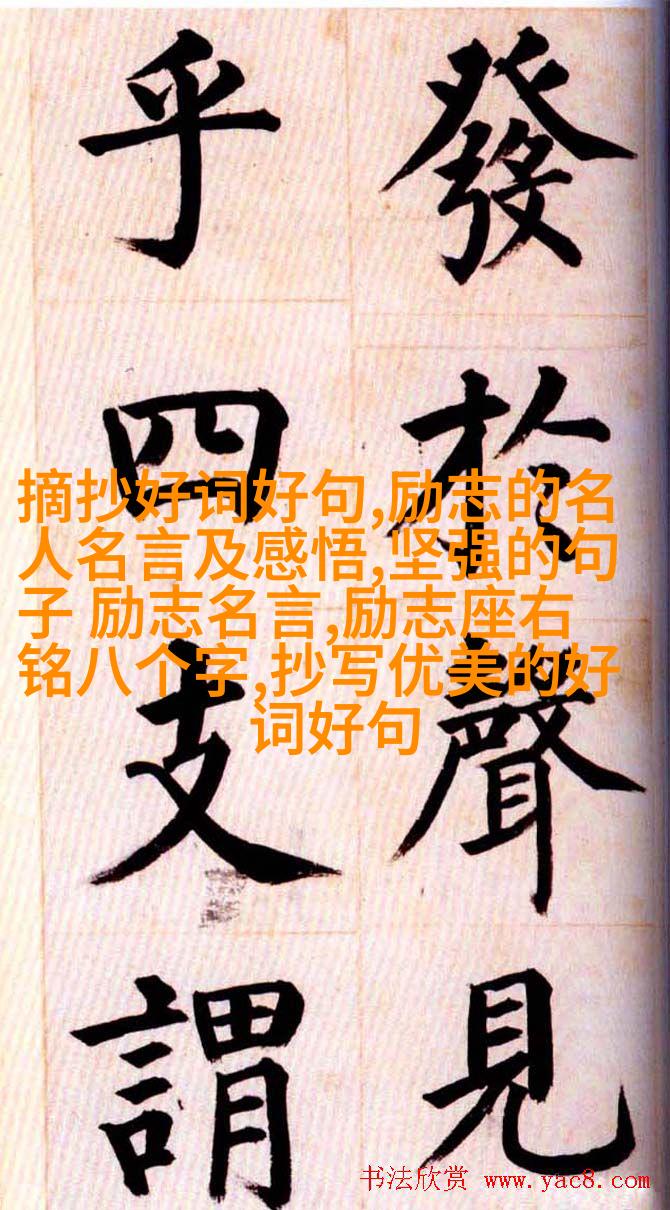 發於聲見
乎四支謂
摘抄好词好句,励志的名
人名言及感悟,坚强的句
子 励志名言,励志座右
铭八个字,抄写优美的好
词好句
书法欣赏 www.yac8.com